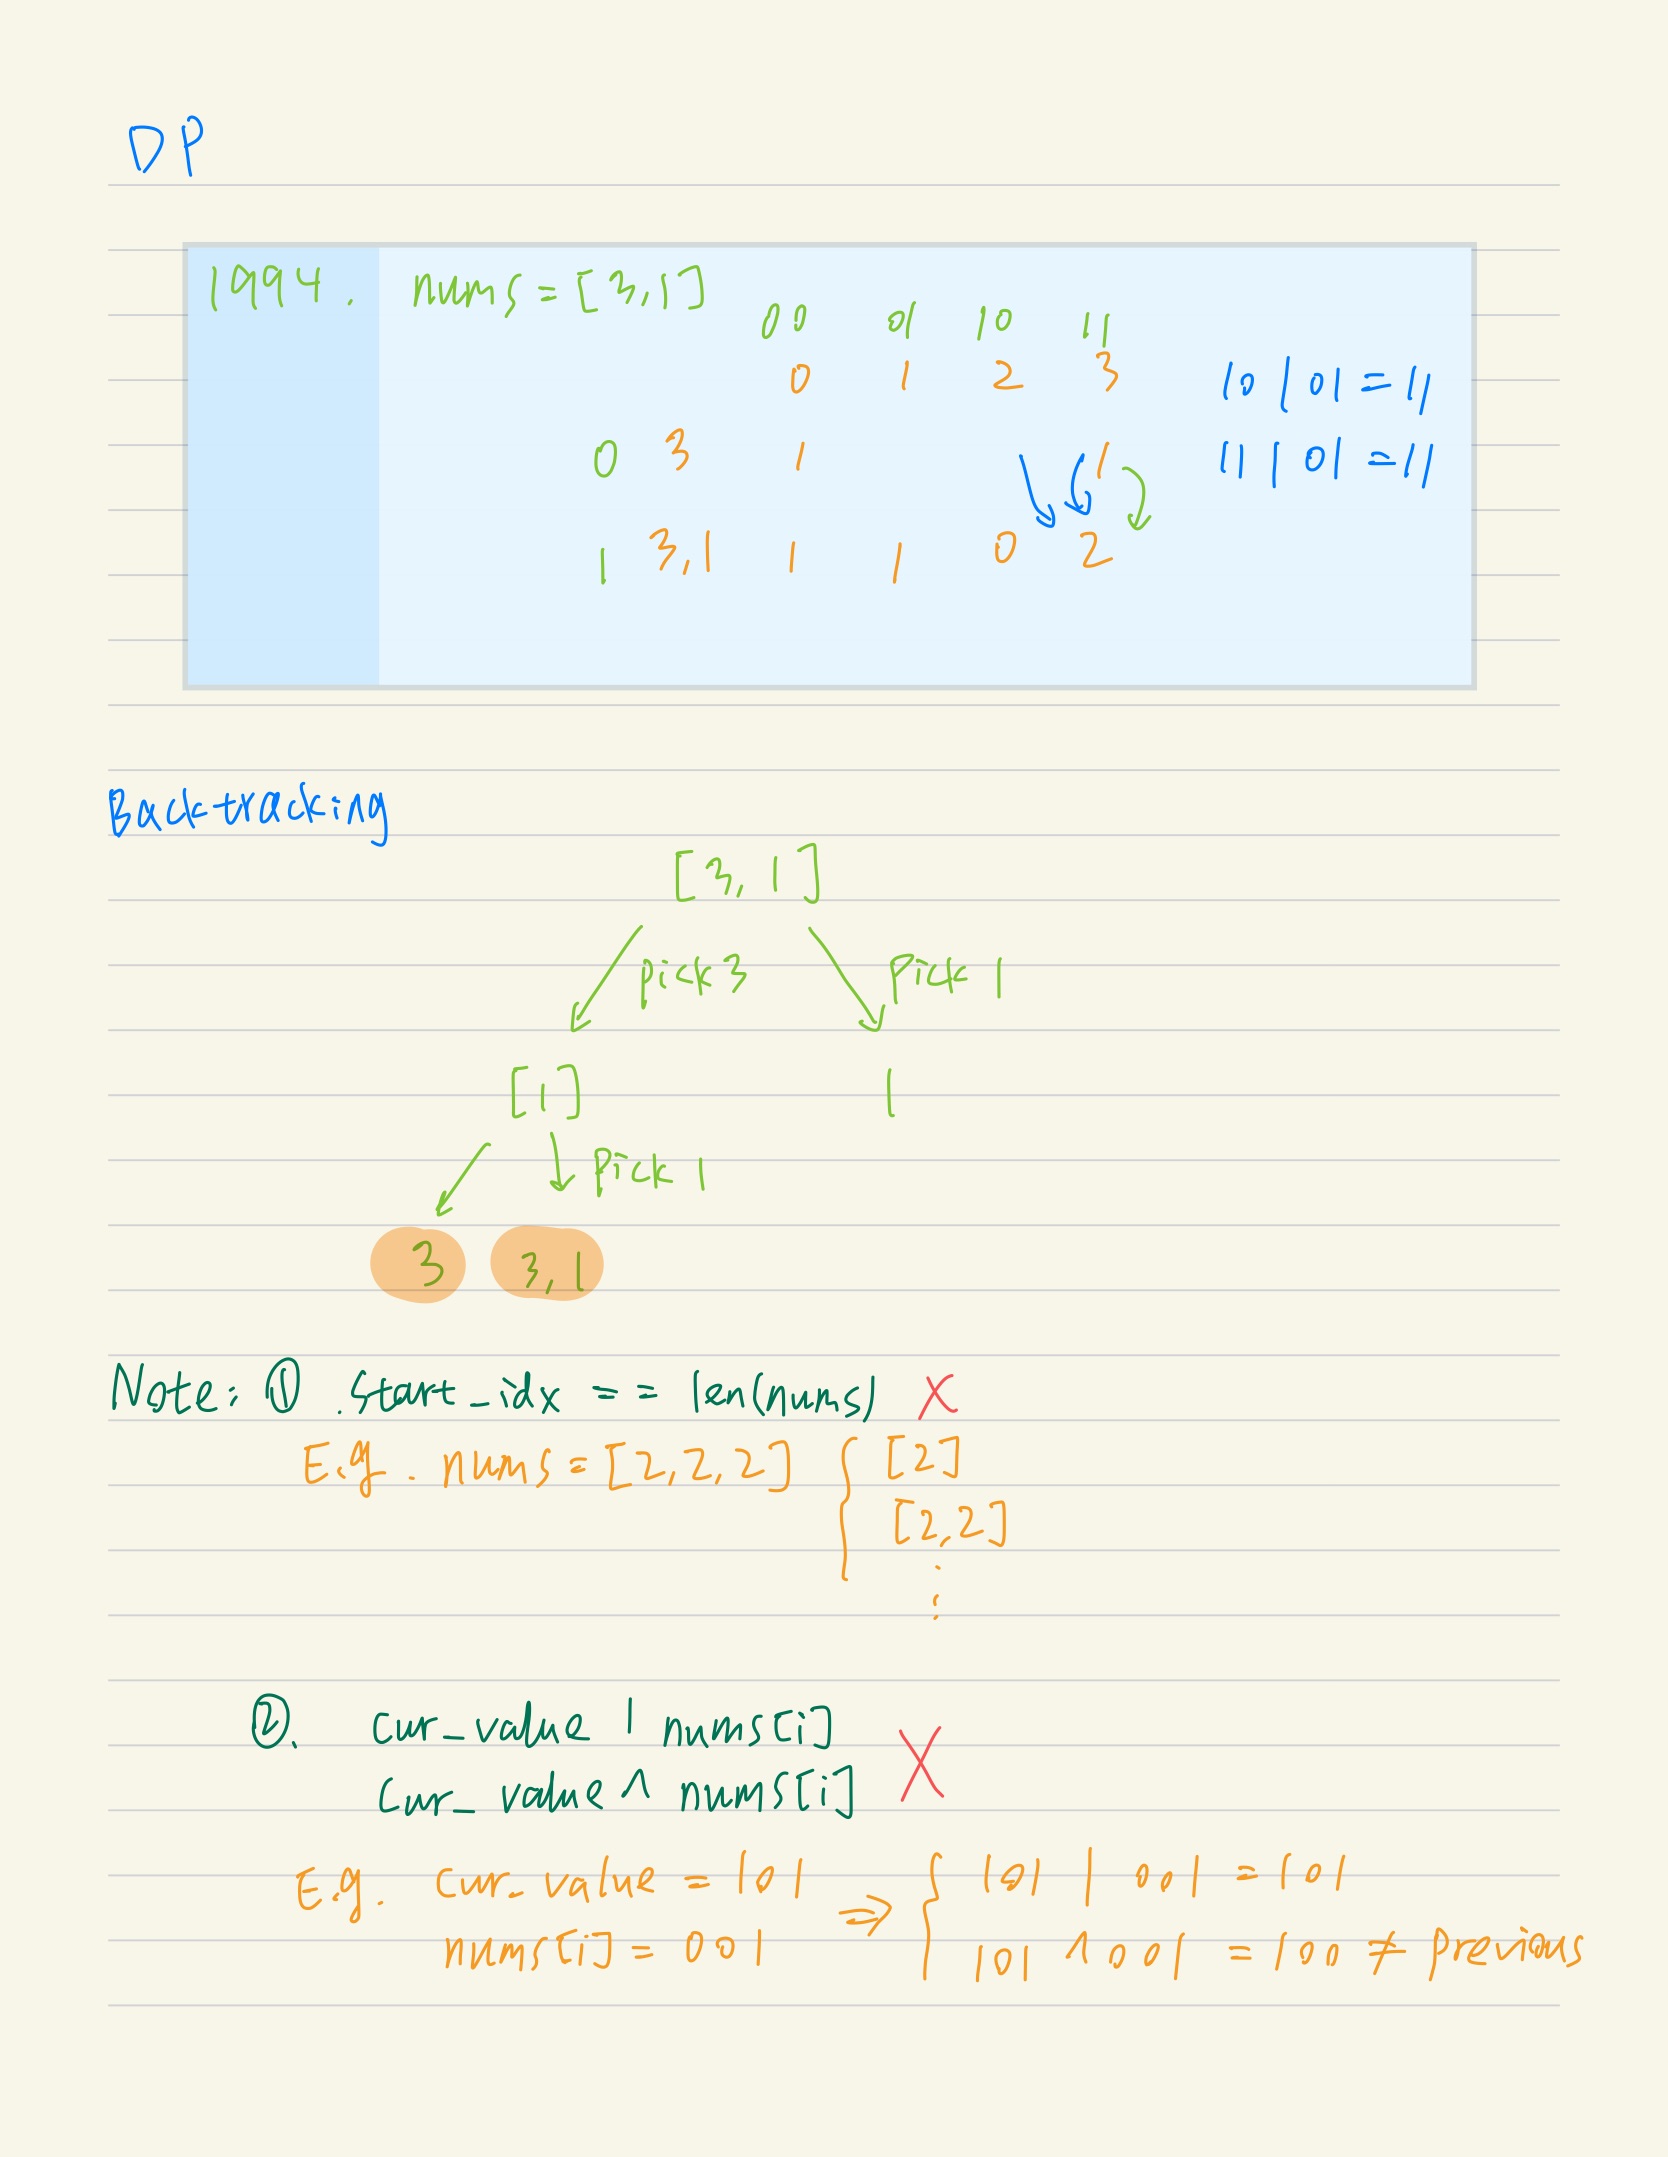 DP
1994. nums = [3,1]
00 01 10 11
0 1 2 3 10 | 01 = 11
0 3 1 1 11 | 01 = 11
1 3,1 1 1 0 2
Backtracking
[3, 1]
pick 3 Pick 1
[1] 1
Pick 1
3 3, 1
Note: ① .start_idx == len(nums) X
E.g. nums = [2,2,2] { [2]
[2,2]
⋮
②. cur_value | nums[i]
cur_value ^ nums[i] X
E.g. cur_value = 101 ⇒ { 101 | 001 = 101
nums[i] = 001 101 ^ 001 = 100 ≠ previous